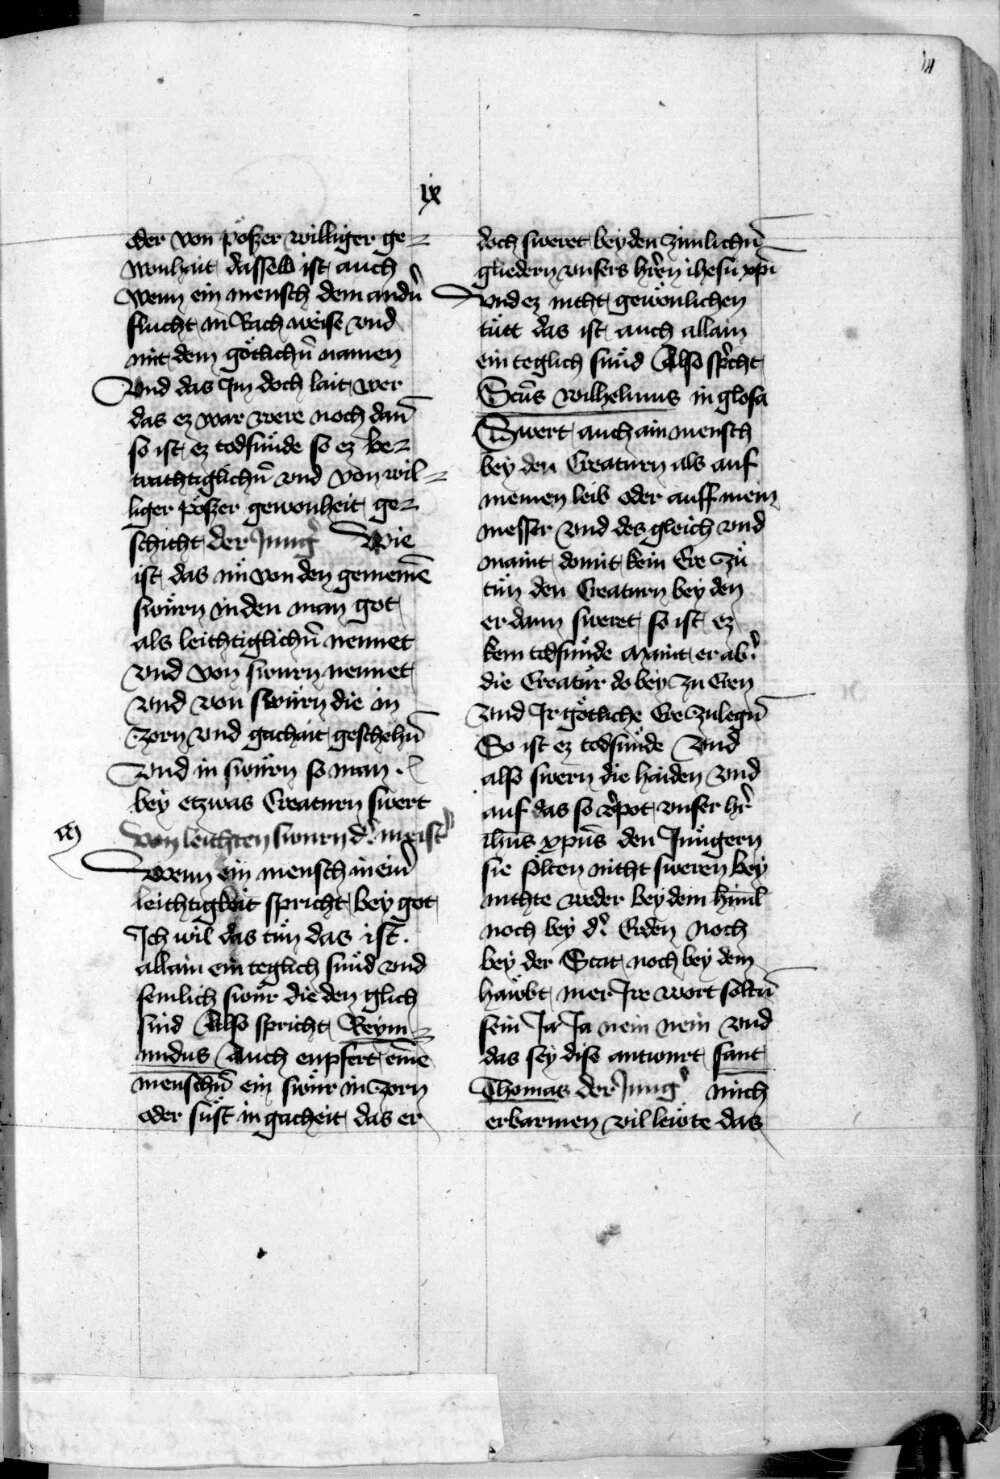 14
ix
oder von poͤszer williger ge-
wonhait dasselb ist auch
wenn ein mensch dem andn̄
flucht in Rach weise vnd
mit dem goͤtlichn̄ namen
Vnd das Im doch lait wer
das ez war were noch dan̄
so ist ez todsuͤnde so ez be-
trachtiglichn̄ vnd von wil-
liger poͤszer gewonheit ge-
schicht der Jung̾ Wie
ist das nu̇ von den gemeinē
swuͤrn in den man got
als leichtiglichn̄ nennet
vnd von swurn nennet
vnd von swuͤrn die in
zorn vnd gachait geschehn̄
Vnd in swuͤrn so man
bey etzwas Creaturn swert
von leichten swurn d̾ meist̾
Wenn ein mensch in ein̾
leichtigkeit spricht bey got
Ich wil das tuͤn das ist
allain ein teglich suͤnd vnd
semlich swuͤr die den glich
sind Also spricht Reym-
undus Auch enpfert einē
menschn̄ ein swuͤr in zorn
oder sust in gacheit das er
doch sweret bey den zimlichn̄
gliedern vnsers hr̄en ihesu xp̄i
Vnd ez nicht gewoͤnlichen
tuͤtt das ist auch allain
ein teglich suͤnd Also sp̾cht
Sct̄us wilhelmus in glosa
Swert auch ain mensch
bey den Creaturn als auf
meinen leib oder auff mein
messer vnd des gleich vnd
maint domit kein Ere zuͤ
tuͤn den Creaturn bey den
er dann sweret so ist ez
kein todsuͤnde maint er ab̾
die Creatur do bey zu Eren
Vnd Ir goͤtliche Ere zulegn̄
So ist ez todsuͤnde Vnd
also swern die haiden vnd
auf das so v̾pot vnser hr̄
ihūs xpūs den Juͤngern
sie solten nicht sweren bey
nichte weder bey dem himl̄
noch bey d̾ Erden noch
bey der Stat noch bey dem
hawbt mer Ire wort soltn̄
sein Ja Ja nein nein vnd
das sey dise antwurt sant
Thomas der Jung̾ mich
erbarmen vil lewte das